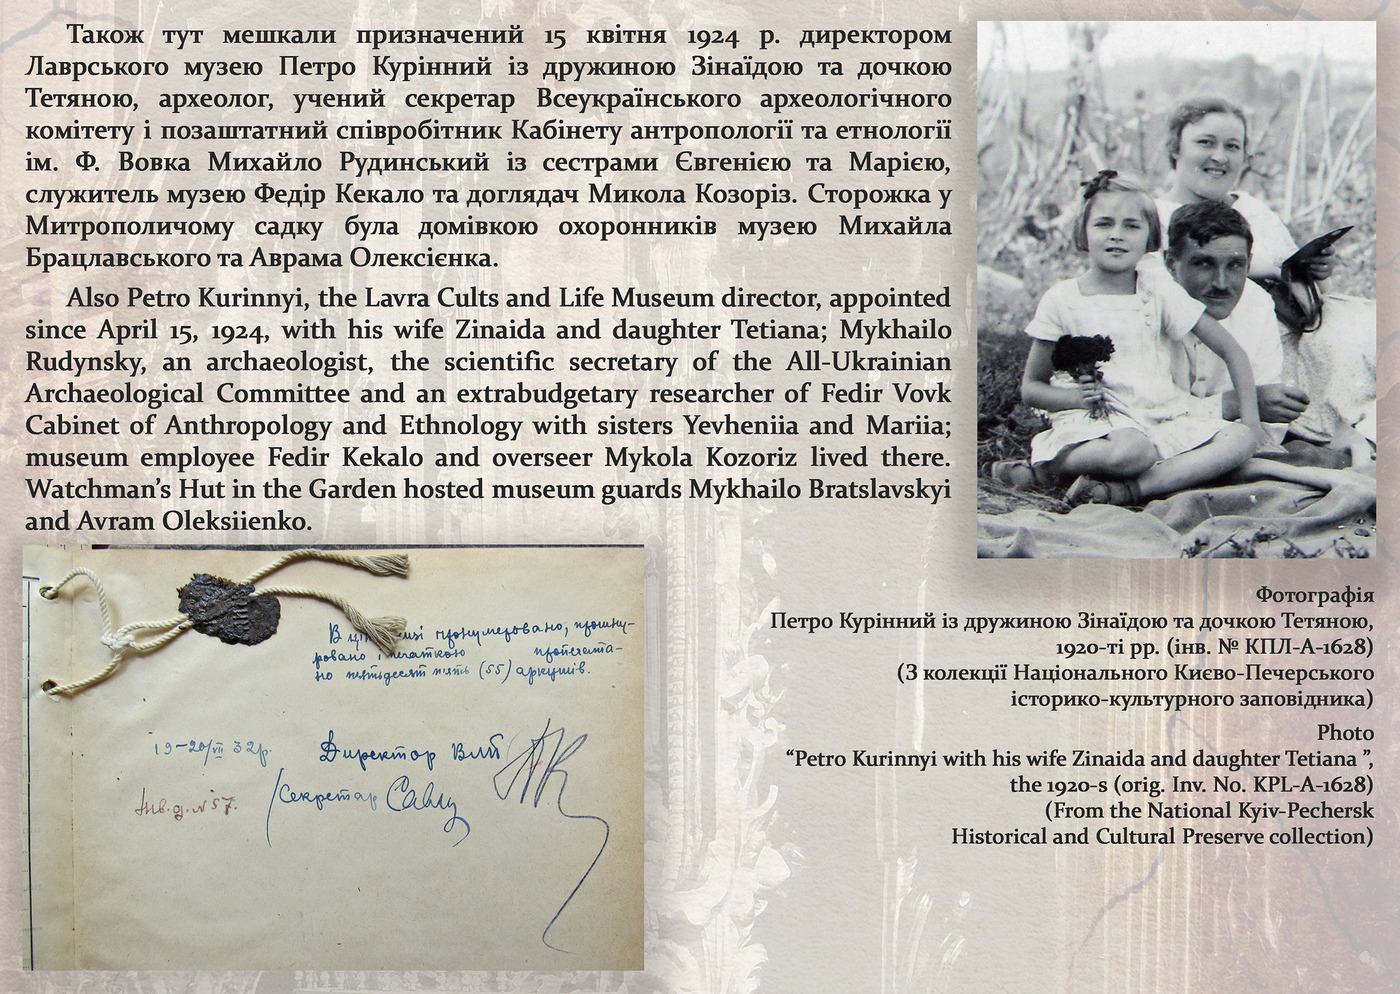 Також тут мешкали призначений 15 квітня 1924 р. директором
Лаврського музею Петро Курінний із дружиною Зінаїдою та дочкою
Тетяною, археолог, учений секретар Всеукраїнського археологічного
комітету і позаштатний співробітник Кабінету антропології та етнології
ім. Ф. Вовка Михайло Рудинський із сестрами Євгенією та Марією,
служитель музею Федір Кекало та доглядач Микола Козоріз. Сторожка у
Митрополичому садку була домівкою охоронників музею Михайла
Брацлавського та Аврама Олексієнка.
Also Petro Kurinnyi, the Lavra Cults and Life Museum director, appointed
since April 15, 1924, with his wife Zinaida and daughter Tetiana; Mykhailo
Rudynsky, an archaeologist, the scientific secretary of the All-Ukrainian
Archaeological Committee and an extrabudgetary researcher of Fedir Vovk
Cabinet of Anthropology and Ethnology with sisters Yevheniia and Mariia;
museum employee Fedir Kekalo and overseer Mykola Kozoriz lived there.
Watchman’s Hut in the Garden hosted museum guards Mykhailo Bratslavskyi
and Avram Oleksiienko.
В пронумеровано, прошну-
ровано і печаткою
но пятьдесят пять (55) аркушів.
19-20/VII 32р.
Директор ВМГ
Секретар
Інв. д. № 57.
Фотографія
Петро Курінний із дружиною Зінаїдою та дочкою Тетяною,
1920-ті рр. (інв. № КПЛ-А-1628)
(З колекції Національного Києво-Печерського
історико-культурного заповідника)
Photo
“Petro Kurinnyi with his wife Zinaida and daughter Tetiana ”,
the 1920-s (orig. Inv. No. KPL-A-1628)
(From the National Kyiv-Pechersk
Historical and Cultural Preserve collection)